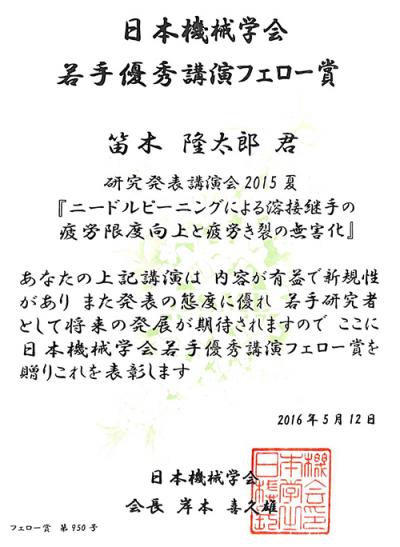 日本機械学会
若手優秀講演フェロー賞
笛木 隆太郎 君
研究発表講演会2015夏
『ニードルピーニングによる溶接継手の
疲労限度向上と疲労き裂の無害化』
あなたの上記講演は 内容が有益で新規性
があり また発表の態度に優れ 若手研究者
として将来の発展が期待されますので ここに
日本機械学会若手優秀講演フェロー賞を
贈りこれを表彰します
2016年5月12日
日本機械学会
会長 岸本 喜久雄
フェロー賞 第950号